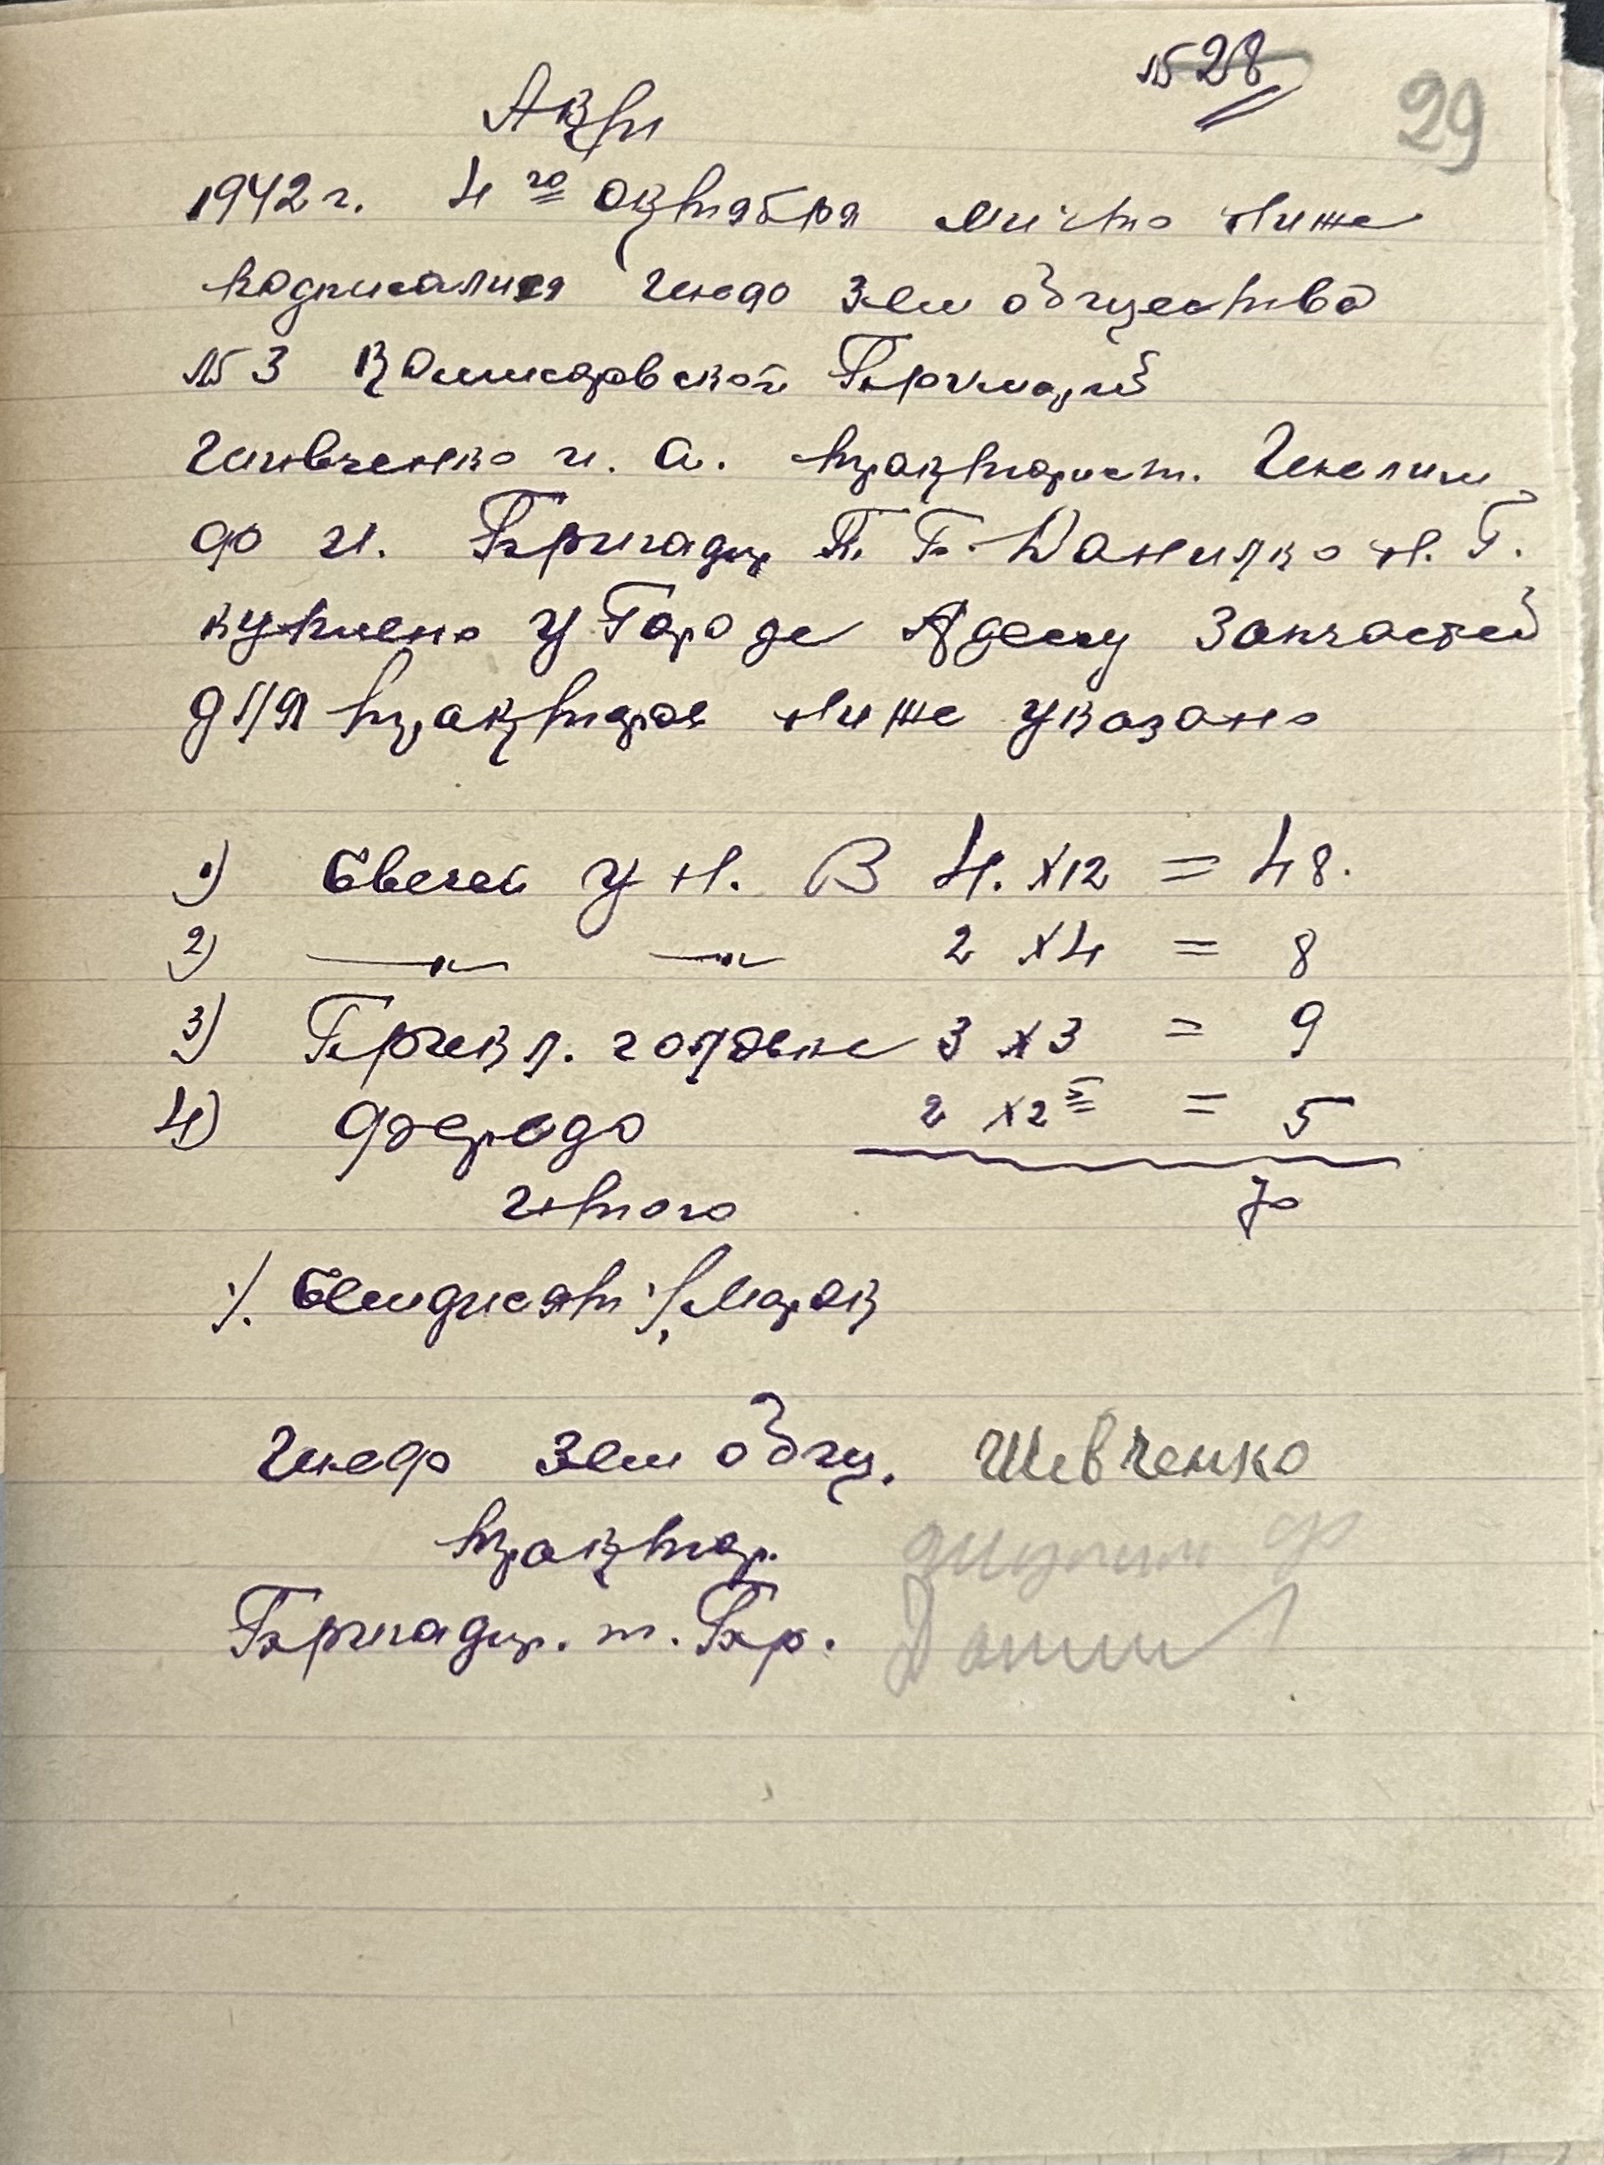 № 28
29
Акт
1942 г. 4го октября место ниже
подписалися шеф Зем общества
№ 3 Комисаровской Примарий
Шевченко и. а. тракторист.
ф и. Бригадир Т. Б. Данилко Н. Г.
куплено у Городе Адесу Запчастей
для трактора ниже указано
1) Свечей у н. В 4. х12 = 48.
2) —„— —„— 2 х4 = 8
3) 3 х3 = 9
4) феродо 2 х2 5 = 5
итого 70
/. Семдисят /. Марок
Шеф Зем общ. Шевченко
трактор.
Бригадир. т. Бр. Данил